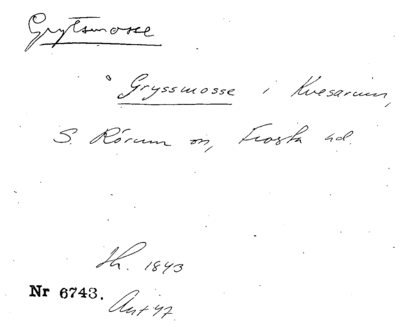 Grytsmosse
° Gryssmosse i Kvesarum,
S. Rörum sn, Frosta hd.
Sk. 1843
Nr 6743.
Ant 47